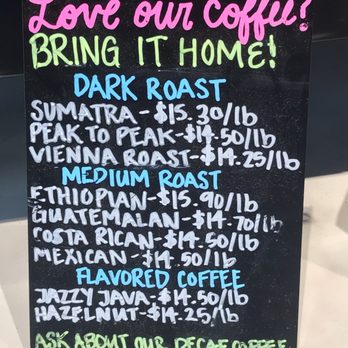 Love our coffee?
BRING IT HOME!
DARK ROAST
SUMATRA-$15.30/lb
PEAK TO PEAK-$14.50/lb
VIENNA ROAST-$14.25/lb
MEDIUM ROAST
ETHIOPIAN-$15.90/lb
GUATEMALAN-$14.70/lb
COSTA RICAN-$14.50/lb
MEXICAN-$14.50/lb
FLAVORED COFFEE
JAZZY JAVA-$14.50/lb
HAZELNUT-$14.25/lb
ASK ABOUT OUR DECAF COFFEE